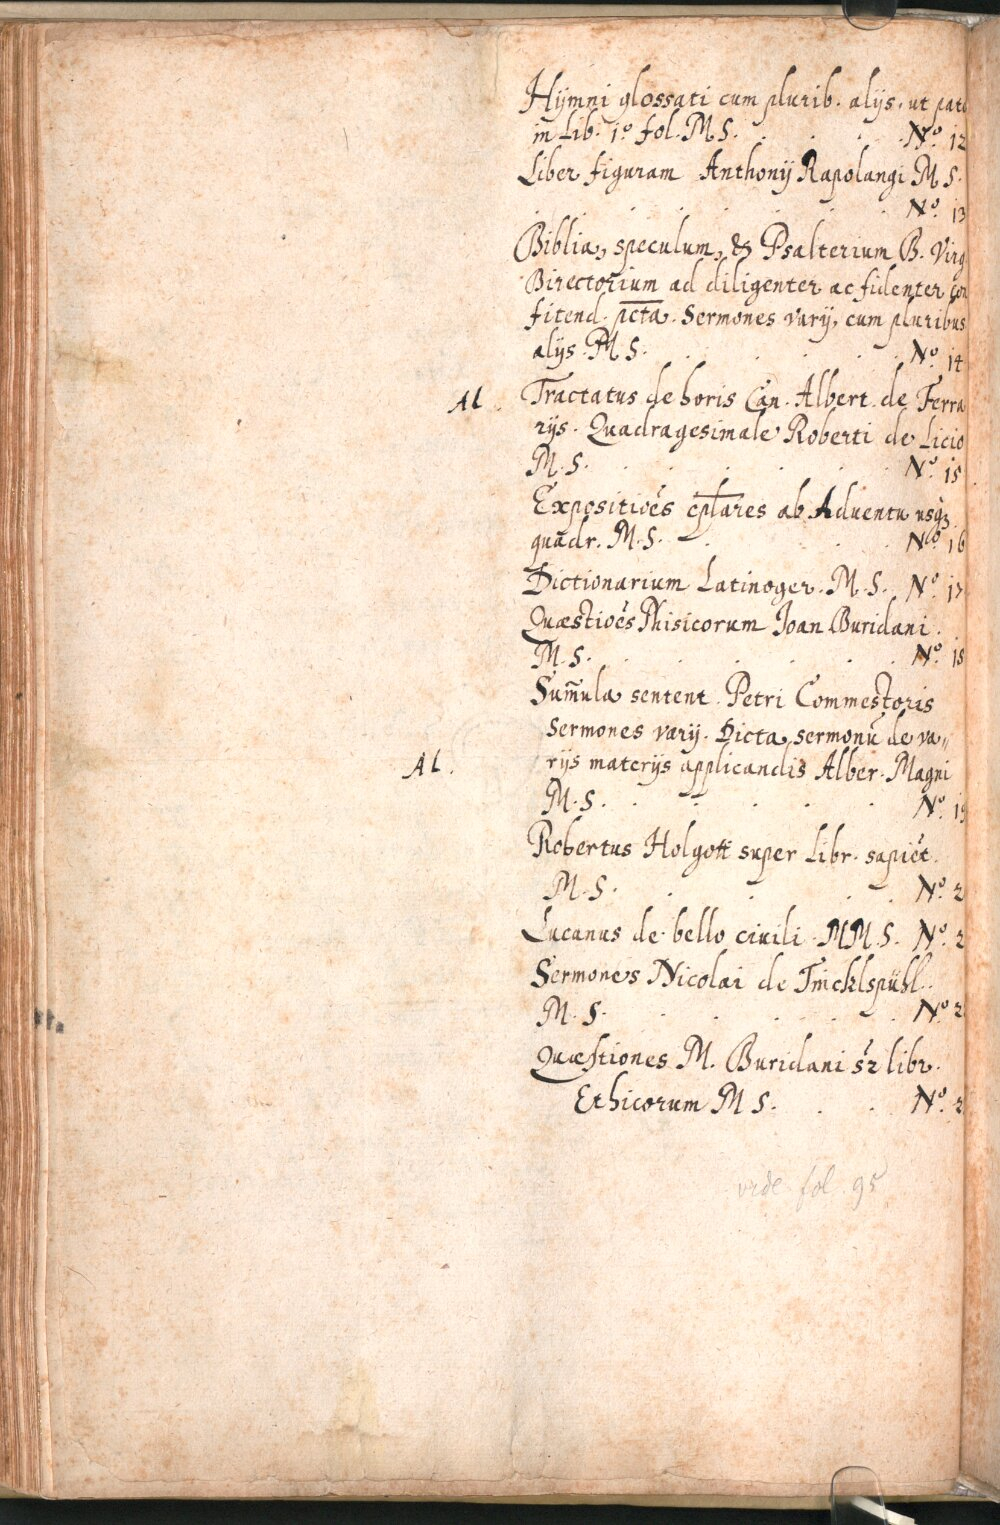 Hÿmni glossati cum plurib. alijs, ut pate
in Lib. 1º fol. M S. Nº. 12
Liber figuram Anthonij Rapolangi M S.
Nº. 13
Biblia, speculum, & Psalterium B. Virg
Directorium ad diligenter ac fidenter con
fitend. pcta. Sermones varij, cum pluribus
alijs. M S. Nº. 14
Al. Tractatus de horis Can. Albert. de Ferra
rijs. Quadragesimale Roberti de Licio
M. S. Nº. 15
Expositiões cplares ab Aduentu usqȝ
quadr. M. S. Nº. 16
Dictionarium Latinoger. M. S. Nº. 17
Quæstiões Phisicorum Joan Buridani.
M. S. Nº. 18
Sum̃ula sentent. Petri Commestoris
Sermones varij. Dicta sermonũ de va„
Al. rijs materijs applicandis Alber. Magni
M. S. Nº. 19
Robertus Holgott super Libr. sapiẽt.
M. S. Nº. 2
Lucanus de bello ciuili. M. S. Nº. 2
Sermones Nicolai de Tincklspühl.
M. S. Nº. 2
Quæstiones M. Buridani sr libr.
Ethicorum M S. Nº. 2
vide fol. 95